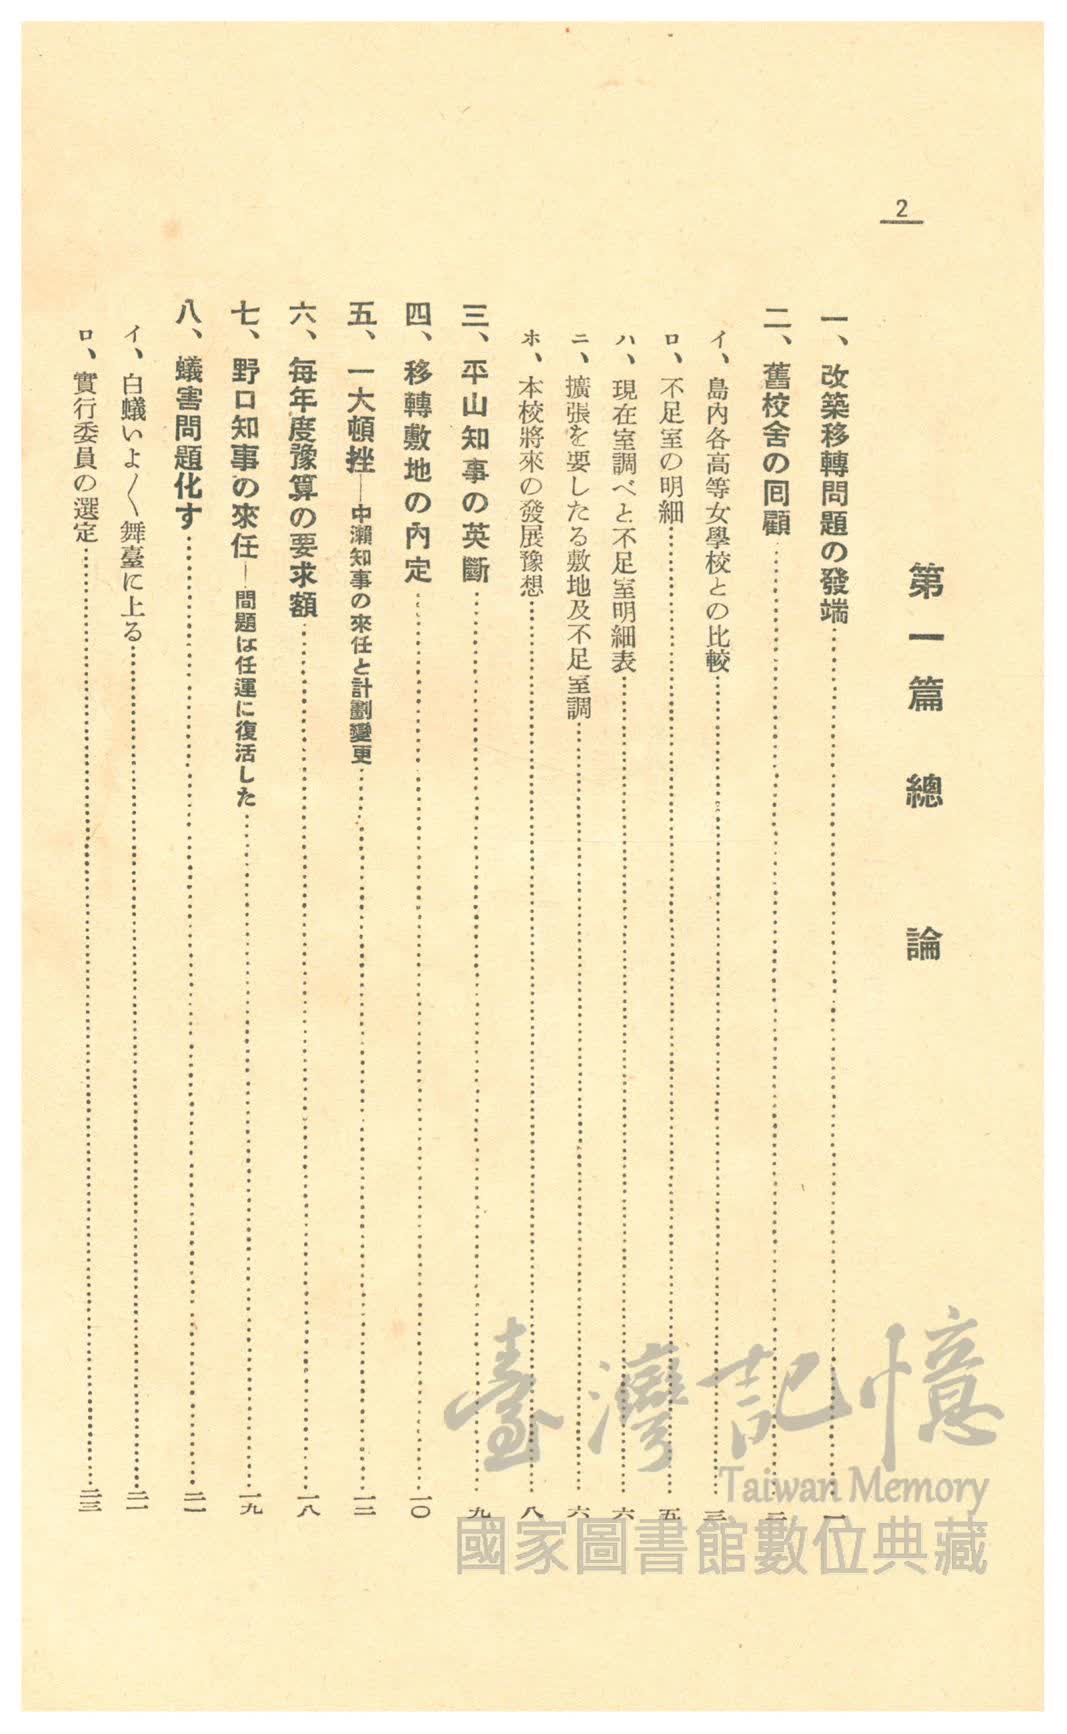 2
第一篇　總論
一、改築移轉問題の發端……一
二、舊校舍の回顧……二
イ、島內各高等女學校との比較……三
ロ、不足室の明細……五
ハ、現在室調べと不足室明細表……六
ニ、擴張を要したる敷地及不足室調……六
ホ、本校將來の發展豫想……八
三、平山知事の英斷……九
四、移轉敷地の內定……一〇
五、一大頓挫—中瀨知事の來任と計劃變更……一二
六、每年度豫算の要求額……一八
七、野口知事の來任—問題は任運に復活した……一九
八、蟻害問題化す……二一
イ、白蟻いよ〱舞臺に上る……二一
ロ、實行委員の選定……二三
臺灣記憶
Taiwan Memory
國家圖書館數位典藏